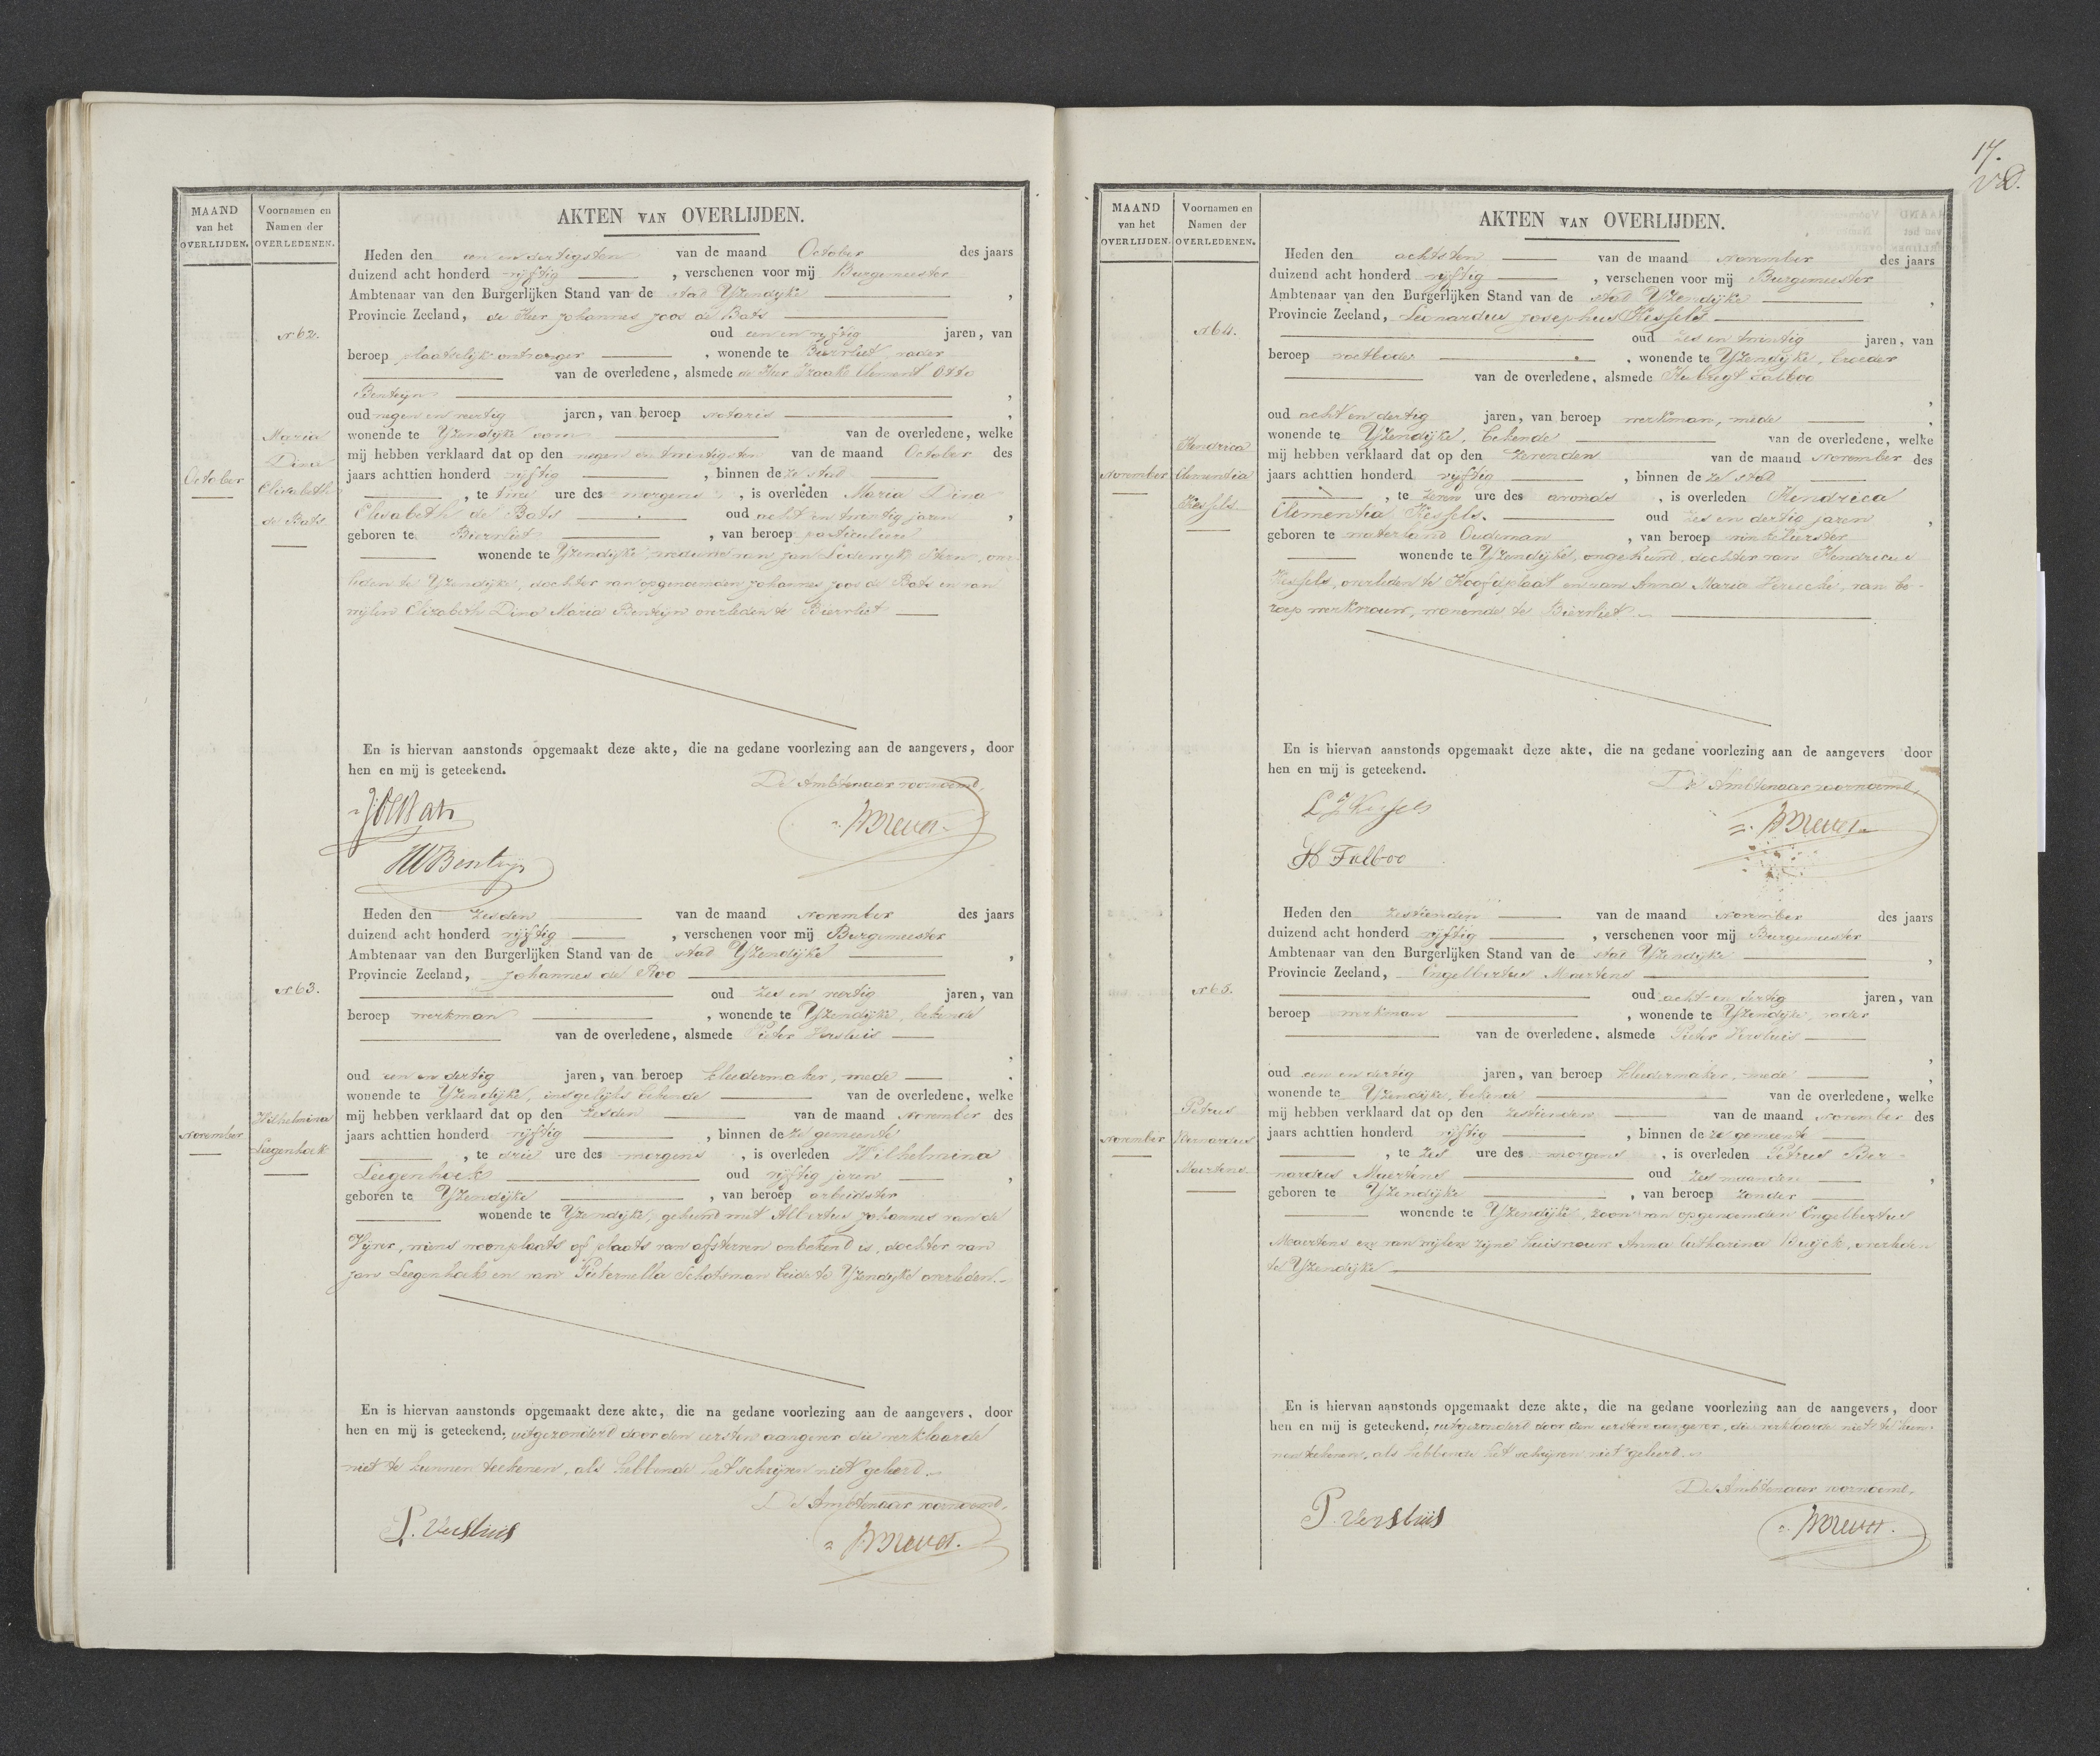 MAAND
van het
OVERLIJDEN.
Voornamen en
Namen der
OVERLEDENEN.
AKTEN VAN OVERLIJDEN.
No 62.
October
Maria
Dina
Elisabeth
de Bats
Heden den een en dertigsten van de maand October des jaars
duizend acht honderd vijftig , verschenen voor mij Burgemeester
Ambtenaar van den Burgerlijken Stand van de stad Yzendijke ,
Provincie Zeeland, de Heer Johannes Joos de Bats
oud een en vijftig jaren, van
beroep plaatselijk ontvanger , wonende te Biervliet, vader
van de overledene, alsmede de Heer Izaak Clement Otto
Benteijn ,
oud negen en veertig jaren, van beroep notaris ,
wonende te Yzendijke oom van de overledene, welke
mij hebben verklaard dat op den negen en twintigsten van de maand October des
jaars achttien honderd vijftig , binnen deze stad
, te twee ure des morgens , is overleden Maria Dina
Elisabeth de Bats oud acht en twintig jaren ,
geboren te Biervliet , van beroep particuliere
wonende te Yzendijke, weduwe van Jan Lodewyk Stern, over
leden te Yzendijke, dochter van opgenoemden Johannes Joos de Bats en van
wijlen Elizabeth Dina Maria Benteijn overleden te Biervliet
En is hiervan aanstonds opgemaakt deze akte, die na gedane voorlezing aan de aangevers, door
hen en mij is geteekend.
De Ambtenaar voornoemd,
No 63.
November
Wilhelmina
Leegenhoek
Heden den zesden van de maand November des jaars
duizend acht honderd vijftig , verschenen voor mij Burgemeester
Ambtenaar van den Burgerlijken Stand van de stad Yzendijke ,
Provincie Zeeland, Johannes de Roo
oud zes en veertig jaren, van
beroep werkman , wonende te Yzendijke, bekende
van de overledene, alsmede Pieter Versluis
,
oud een en dertig jaren, van beroep kleedermaker, mede .
wonende te Yzendijke, insgelijks bekende van de overledene, welke
mij hebben verklaard dat op den zesden van de maand November des
jaars achttien honderd vijftig , binnen deze gemeente
, te drie ure des morgens , is overleden Wilhelmina
Leegenhoek oud vijftig jaren ,
geboren te Yzendijke , van beroep arbeidster
wonende te Yzendijke, gehuwd met Albertus Johannes van de
Vijver, wiens woonplaats of plaats van afsterven onbekend is, dochter van
Jan Leegenhoek en van Pieternella Schotsman beide te Yzendijke overleden.
En is hiervan aanstonds opgemaakt deze akte, die na gedane voorlezing aan de aangevers, door
hen en mij is geteekend, uitgezonderd door den eersten aangever die verklaarde
niet te kunnen teekenen, als hebbende het schrijven niet geleerd.
De Ambtenaar voornoemd,
P. Versluis
17.
MAAND
van het
OVERLIJDEN.
Voornamen en
Namen der
OVERLEDENEN.
AKTEN VAN OVERLIJDEN.
No 64.
November
Hendrica
Clementia
Kessels
Heden den achtsten van de maand November des jaars
duizend acht honderd vijftig , verschenen voor mij Burgemeester
Ambtenaar van den Burgerlijken Stand van de stad Yzendijke ,
Provincie Zeeland, Leonardus Josephus Kessels
oud zes en twintig jaren, van
beroep voetbode , wonende te Yzendijke, broeder
van de overledene, alsmede Hubregt Falboo
,
oud acht en dertig jaren, van beroep werkman, mede ,
wonende te Yzendijke, bekende van de overledene, welke
mij hebben verklaard dat op den zevenden van de maand November des
jaars achttien honderd vijftig , binnen deze stad
, te zeven ure des avonds , is overleden Hendrica
Clementia Kessels. oud zes en dertig jaren ,
geboren te Waterland Oudeman , van beroep winkelierster
wonende te Yzendijke, ongehuwd, dochter van Hendricus
Kessels, overleden te Hoofdplaat en van Anna Maria , van be-
roep werkvrouw, wonende te Biervliet
En is hiervan aanstonds opgemaakt deze akte, die na gedane voorlezing aan de aangevers door
hen en mij is geteekend.
De Ambtenaar voornoemd,
L J Kessels
H Falboo
No 65.
November
Petrus
Bernardus
Maertens
Heden den zestienden van de maand November des jaars
duizend acht honderd vijftig , verschenen voor mij Burgemeester
Ambtenaar van den Burgerlijken Stand van de stad Yzendijke ,
Provincie Zeeland, Engelbertus Maertens
oud acht en dertig jaren, van
beroep werkman , wonende te Yzendijke, vader
van de overledene, alsmede Pieter Versluis
,
oud een en dertig jaren, van beroep kleedermaker, mede ,
wonende te Yzendijke, bekende van de overledene, welke
mij hebben verklaard dat op den zestienden van de maand November des
jaars achttien honderd vijftig , binnen deze gemeente
, te zes ure des morgens , is overleden Petrus Ber-
nardus Maertens oud zes maanden ,
geboren te Yzendijke , van beroep zonder
wonende te Yzendijke, zoon van opgenoemden Engelbertus
Maertens en van wijlen zijne huisvrouw Anna Catharina Buijck, overleden
te Yzendijke
En is hiervan aanstonds opgemaakt deze akte, die na gedane voorlezing aan de aangevers, door
hen en mij is geteekend, uitgezonderd door den eersten aangever, die verklaarde niet te kun-
nen teekenen, als hebbende het schrijven niet geleerd.
De Ambtenaar voornoemd,
P. Versluis